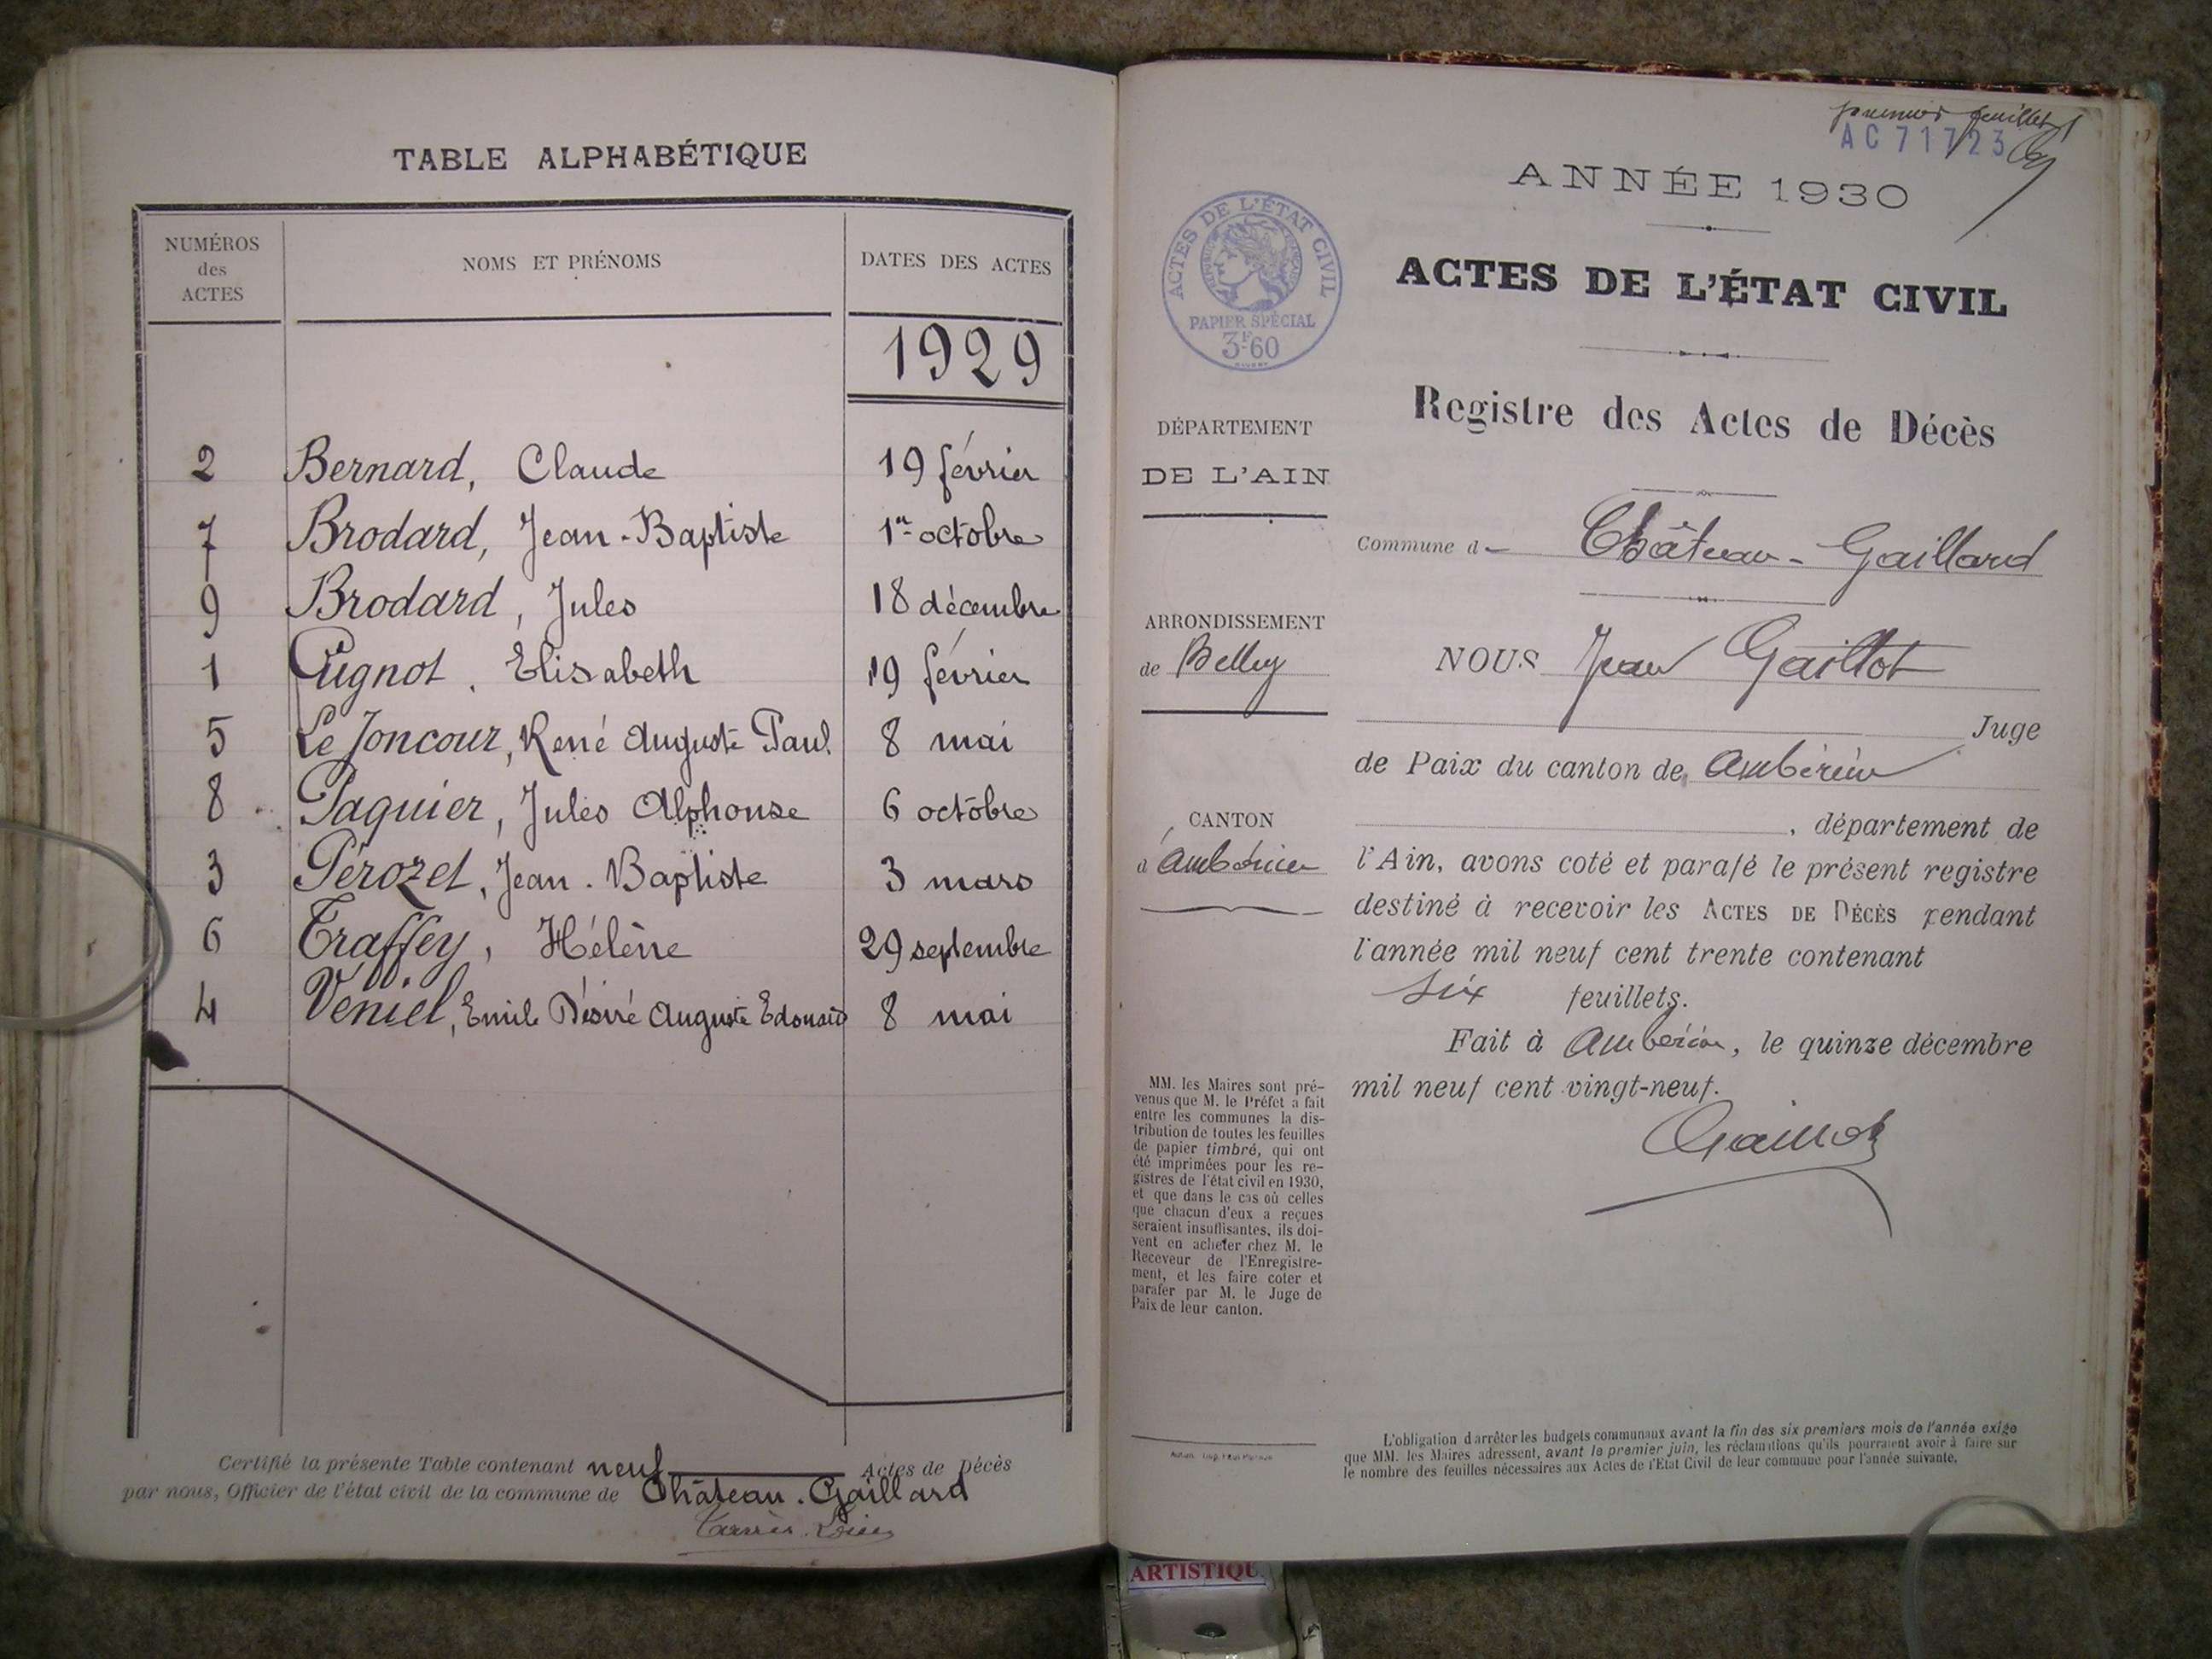 TABLE ALPHABÉTIQUE
NUMÉROS
des
ACTES
NOMS ET PRÉNOMS
DATES DES ACTES
1929
2 Bernard, Claude 19 février
7 Brodard, Jean-Baptiste 1er octobre
9 Brodard, Jules 18 décembre
1 Cugnot, Elisabeth 19 février
5 Le Joncour, René Auguste Paul 8 mai
8 Paquier, Jules Alphonse 6 octobre
3 Pérozet, Jean-Baptiste 3 mars
6 Traffey, Hélène 29 septembre
4 Véniel, Emile Désiré Auguste Edouard 8 mai
Certifié la présente Table contenant neuf Actes de Décès
par nous, Officier de l'état civil de la commune de Château-Gaillard
premier feuillet
AC 71723
ANNÉE 1930
ACTES DE L'ÉTAT CIVIL
PAPIER SPÉCIAL
3F60
ACTES DE L'ÉTAT CIVIL
Registre des Actes de Décès
DÉPARTEMENT
DE L'AIN
Commune d Château-Gaillard
ARRONDISSEMENT
de Belley
NOUS Jean Gaillot
Juge
de Paix du canton de Ambérieu
CANTON
d'Ambérieu
, département de
l'Ain, avons coté et parafé le présent registre
destiné à recevoir les ACTES DE DÉCÈS pendant
l'année mil neuf cent trente contenant
six feuillets.
Fait à Ambérieu, le quinze décembre
mil neuf cent vingt-neuf.
Gaillot
MM. les Maires sont pré-
venus que M. le Préfet a fait
entre les communes la dis-
tribution de toutes les feuilles
de papier timbré, qui ont
été imprimées pour les re-
gistres de l'état civil en 1930,
et que dans le cas où celles
que chacun d'eux a reçues
seraient insuffisantes, ils doi-
vent en acheter chez M. le
Receveur de l'Enregistre-
ment, et les faire coter et
parafer par M. le Juge de
Paix de leur canton.
L'obligation d'arrêter les budgets communaux avant la fin des six premiers mois de l'année exige
que MM. les Maires adressent, avant le premier juin, les réclamations qu'ils pourraient avoir à faire sur
le nombre des feuilles nécessaires aux Actes de l'Etat Civil de leur commune pour l'année suivante.
ARTISTIQU